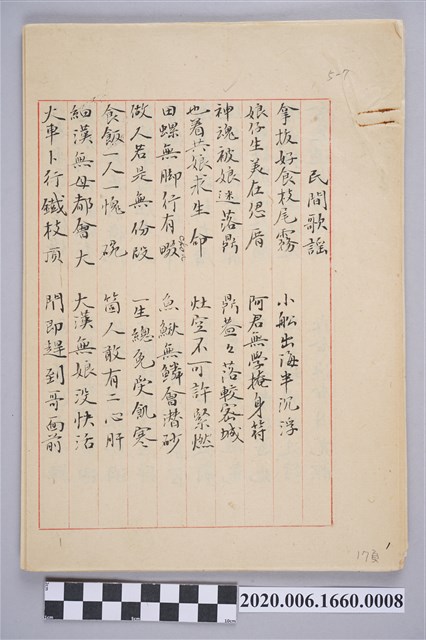 5-7
民間歌謠
拿拔好食枝尾霧 小船出海半沉浮
娘仔生美在您厝 阿君無學掩身符
神魂被娘迷落鼎 鼎蓋々落較密城
也着共娘求生命 灶空不可許緊燃
田螺無脚行有畷 魚鰍無鱗會潛砂
做人若是無份段 一生總免受飢寒
食飯一人一愧硯 箇人敢有二心肝
細漢無母都會大 大漢無娘没快活
大車卜行鐵枝頂 門即趕到哥面前
17頁
2020.006.1660.0008